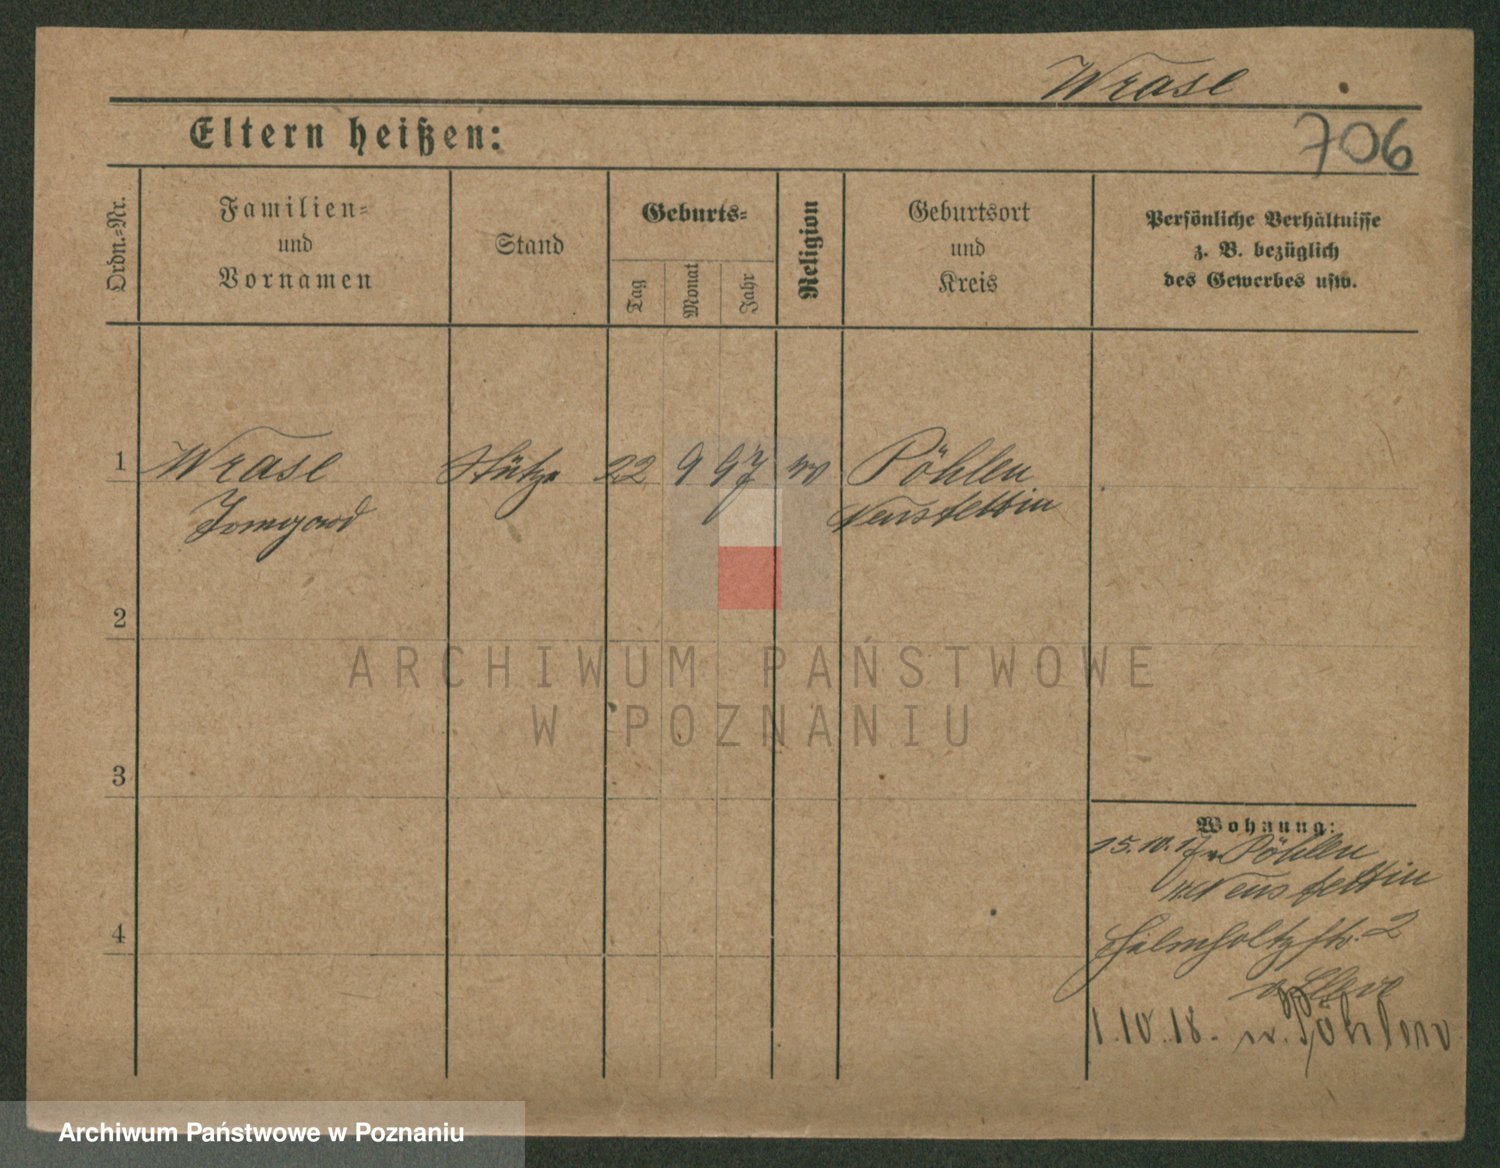 Wrase
706
Eltern heißen:
Ordn.-Nr.
Familien-
und
Vornamen
Stand
Geburts-
Tag
Monat
Jahr
Religion
Geburtsort
und
Kreis
Persönliche Verhältnisse
z. B. bezüglich
des Gewerbes usw.
1 Wrase Stütze 22 9 97 ev Pöhlen
Irmgard Neustettin
2
ARCHIWUM PAŃSTWOWE
W POZNANIU
3
Wohnung:
15.10.17 v. Pöhlen
Neustettin
4
Helmholtzstr. 2
1.10.18. n. Pöhlen
Archiwum Państwowe w Poznaniu